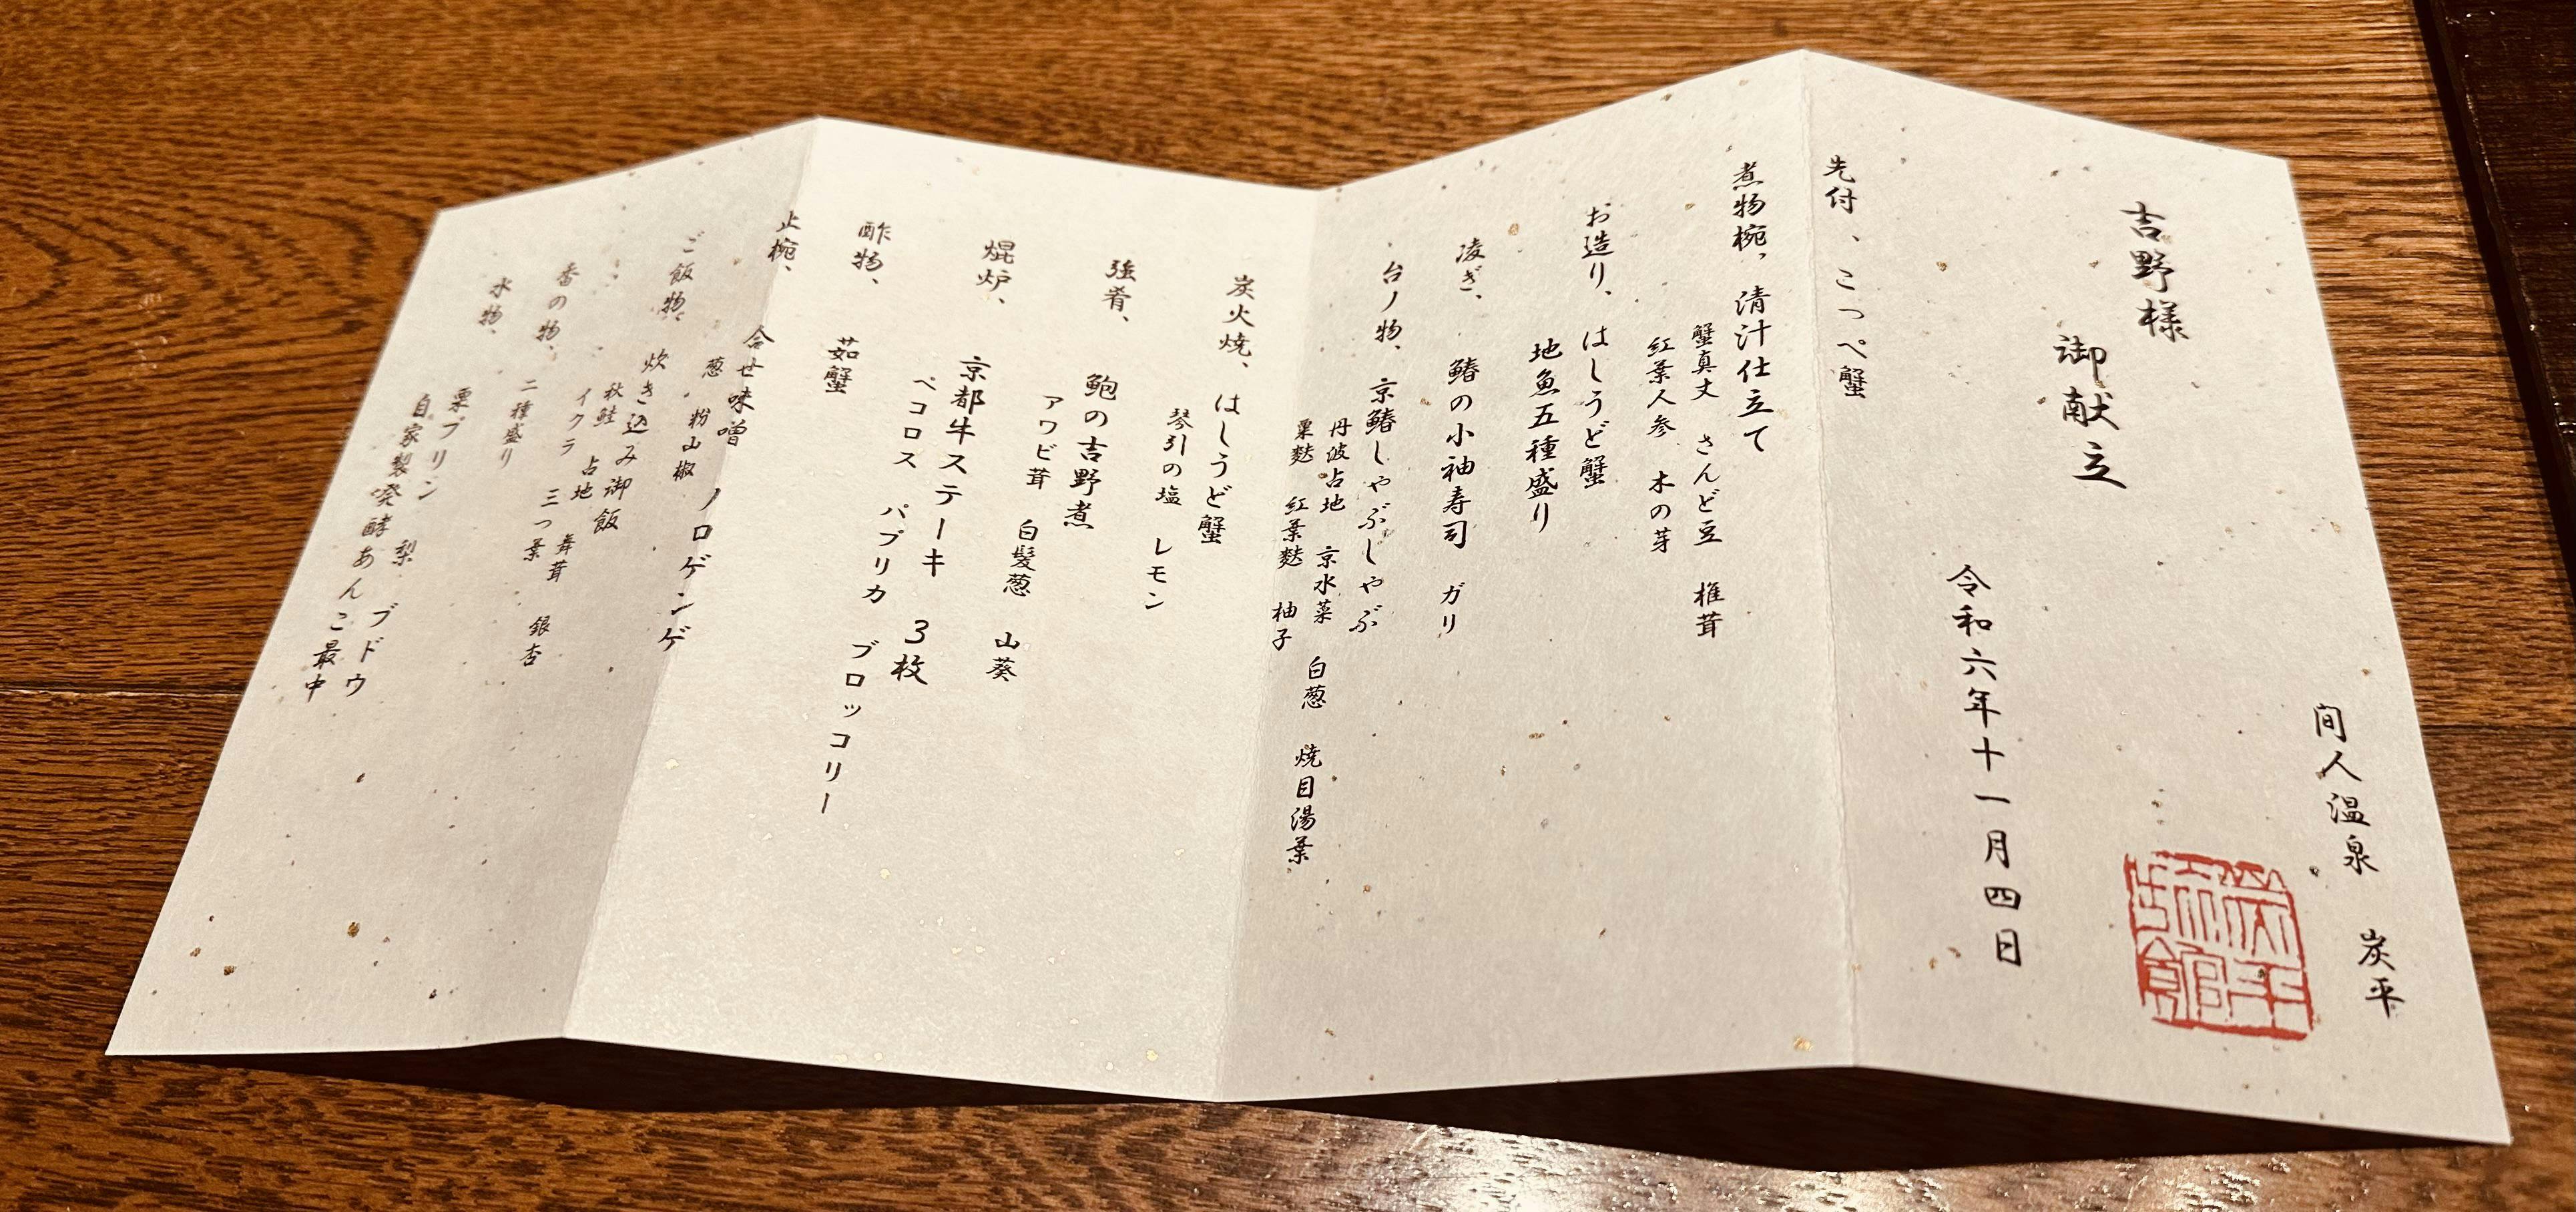 間人温泉 炭平
吉野様
御献立
令和六年十一月四日
先付、こっぺ蟹
煮物椀、清汁仕立て
蟹真丈 さんど豆 椎茸
紅葉人参 木の芽
お造り、はしうど蟹
地魚五種盛り
凌ぎ、鰆の小袖寿司 ガリ
台ノ物、京鰆しゃぶしゃぶ
丹波占地 京水菜 白葱 焼目湯葉
粟麩 紅葉麩 柚子
炭火焼、はしうど蟹
琴引の塩 レモン
強肴、鮑の吉野煮
アワビ茸 白髪葱 山葵
焜炉、京都牛ステーキ 3枚
ペコロス パプリカ ブロッコリー
酢物、茹蟹
止椀、合せ味噌 ノロゲンゲ
葱 粉山椒
ご飯物、炊き込み御飯
秋鮭 占地 舞茸 銀杏
イクラ 三つ葉
香の物、二種盛り
水物、栗プリン 梨 ブドウ
自家製発酵あんこ最中